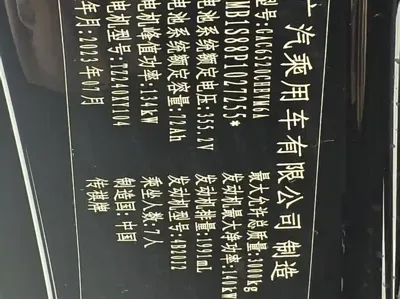 广汽乘用车有限公司 制造
型号:GAC6520CHEVM6A 最大允许总质量:3000kg
MB1S68P1027255* 发动机最大净功率:140kW
电池系统额定电压:355.2V 发动机排量:1991mL
电池系统额定容量:72Ah 发动机型号:4B20J2
电机峰值功率:134kW 乘坐人数:7人
电机型号:TZ240XY104 制造国:中国
年月:2023年07月 传祺牌